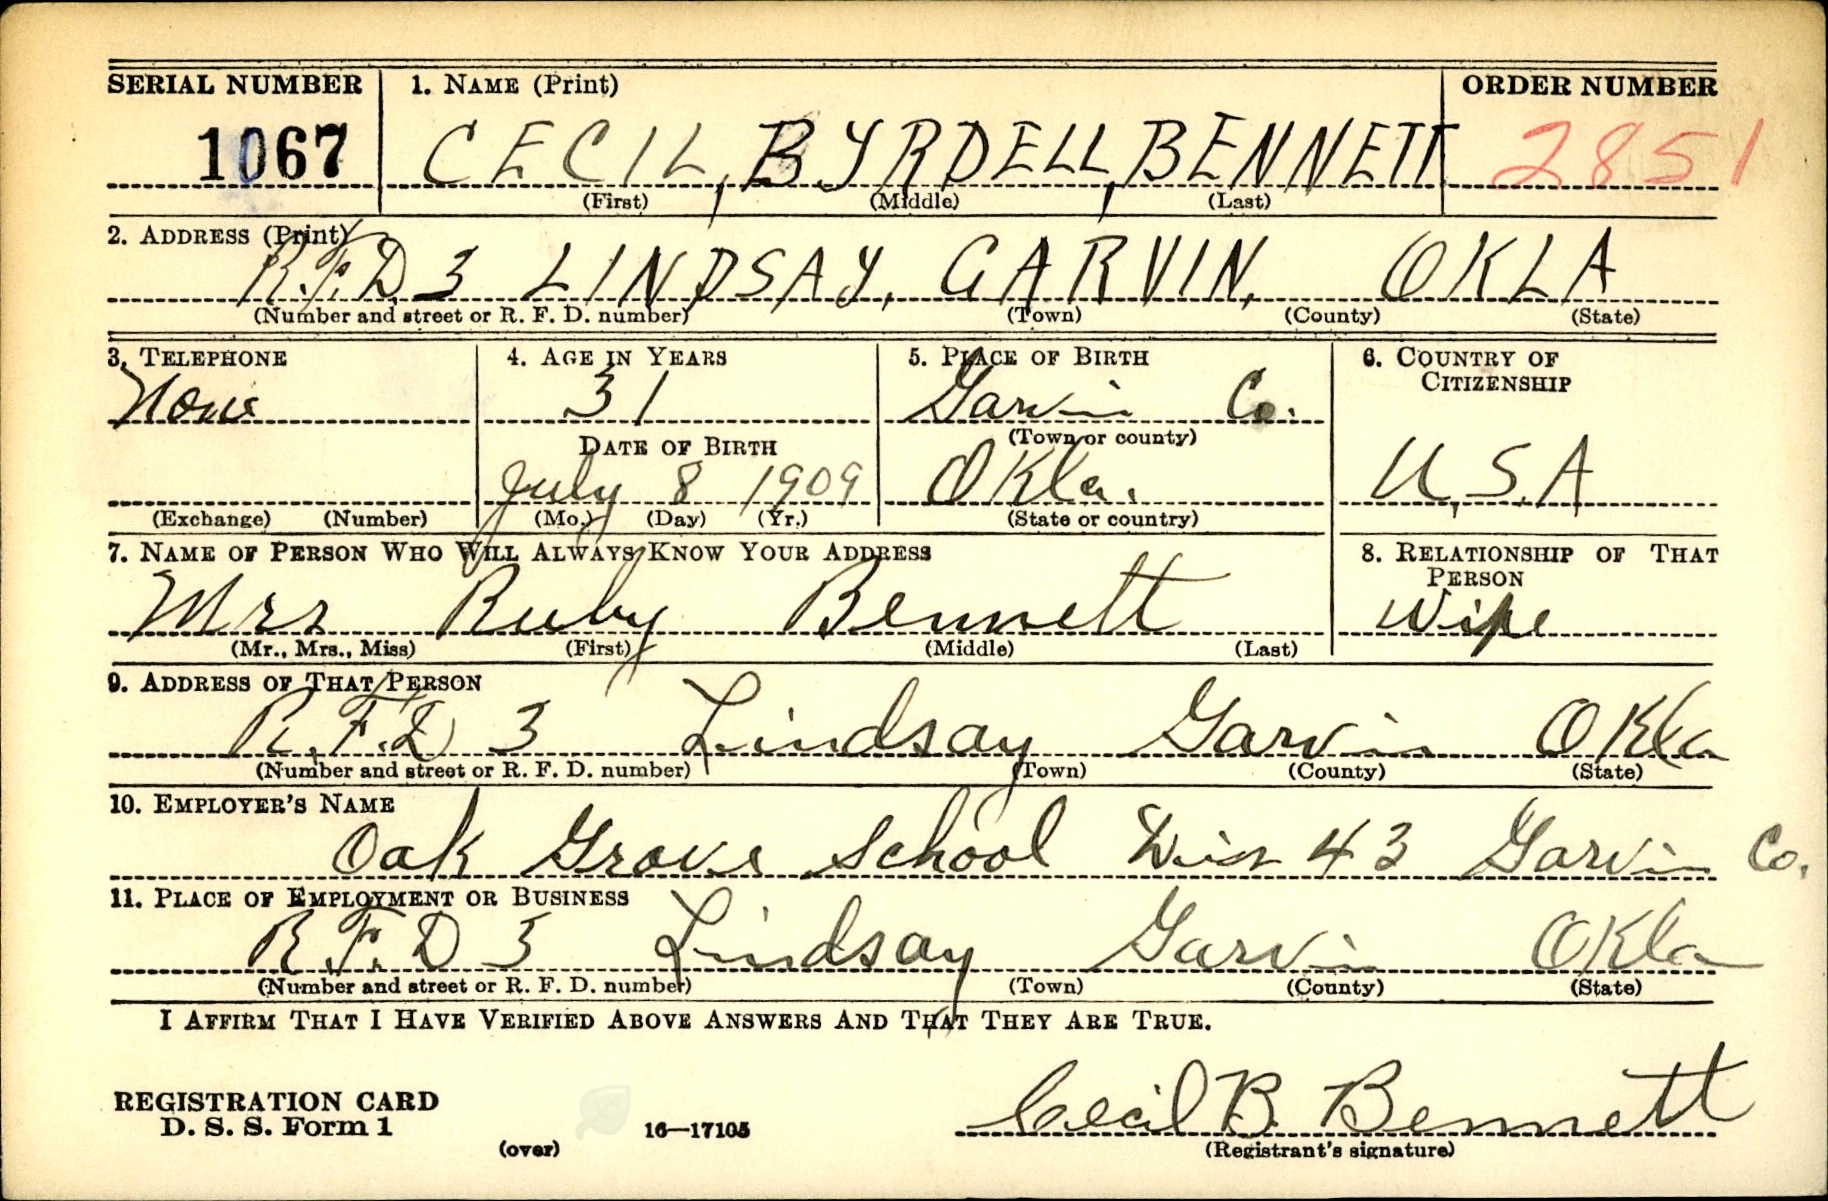 SERIAL NUMBER 1. NAME (Print) ORDER NUMBER
1067 CECIL, BYRDELL, BENNETT 2851
(First) (Middle) (Last)
2. ADDRESS (Print)
R.F.D. 3 LINDSAY, GARVIN, OKLA
(Number and street or R. F. D. number) (Town) (County) (State)
3. TELEPHONE 4. AGE IN YEARS 5. PLACE OF BIRTH 6. COUNTRY OF CITIZENSHIP
None 31 Garvin Co.
DATE OF BIRTH (Town or county)
July 8 1909 Okla. U.S.A
(Exchange) (Number) (Mo.) (Day) (Yr.) (State or country)
7. NAME OF PERSON WHO WILL ALWAYS KNOW YOUR ADDRESS 8. RELATIONSHIP OF THAT PERSON
Mrs Ruby Bennett Wife
(Mr., Mrs., Miss) (First) (Middle) (Last)
9. ADDRESS OF THAT PERSON
R.F.D 3 Lindsay Garvin Okla
(Number and street or R. F. D. number) (Town) (County) (State)
10. EMPLOYER'S NAME
Oak Grove School Dist 43 Garvin Co.
11. PLACE OF EMPLOYMENT OR BUSINESS
R.F.D 3 Lindsay Garvin Okla
(Number and street or R. F. D. number) (Town) (County) (State)
I AFFIRM THAT I HAVE VERIFIED ABOVE ANSWERS AND THAT THEY ARE TRUE.
REGISTRATION CARD
D. S. S. Form 1 16—17105 Cecil B. Bennett
(over) (Registrant's signature)